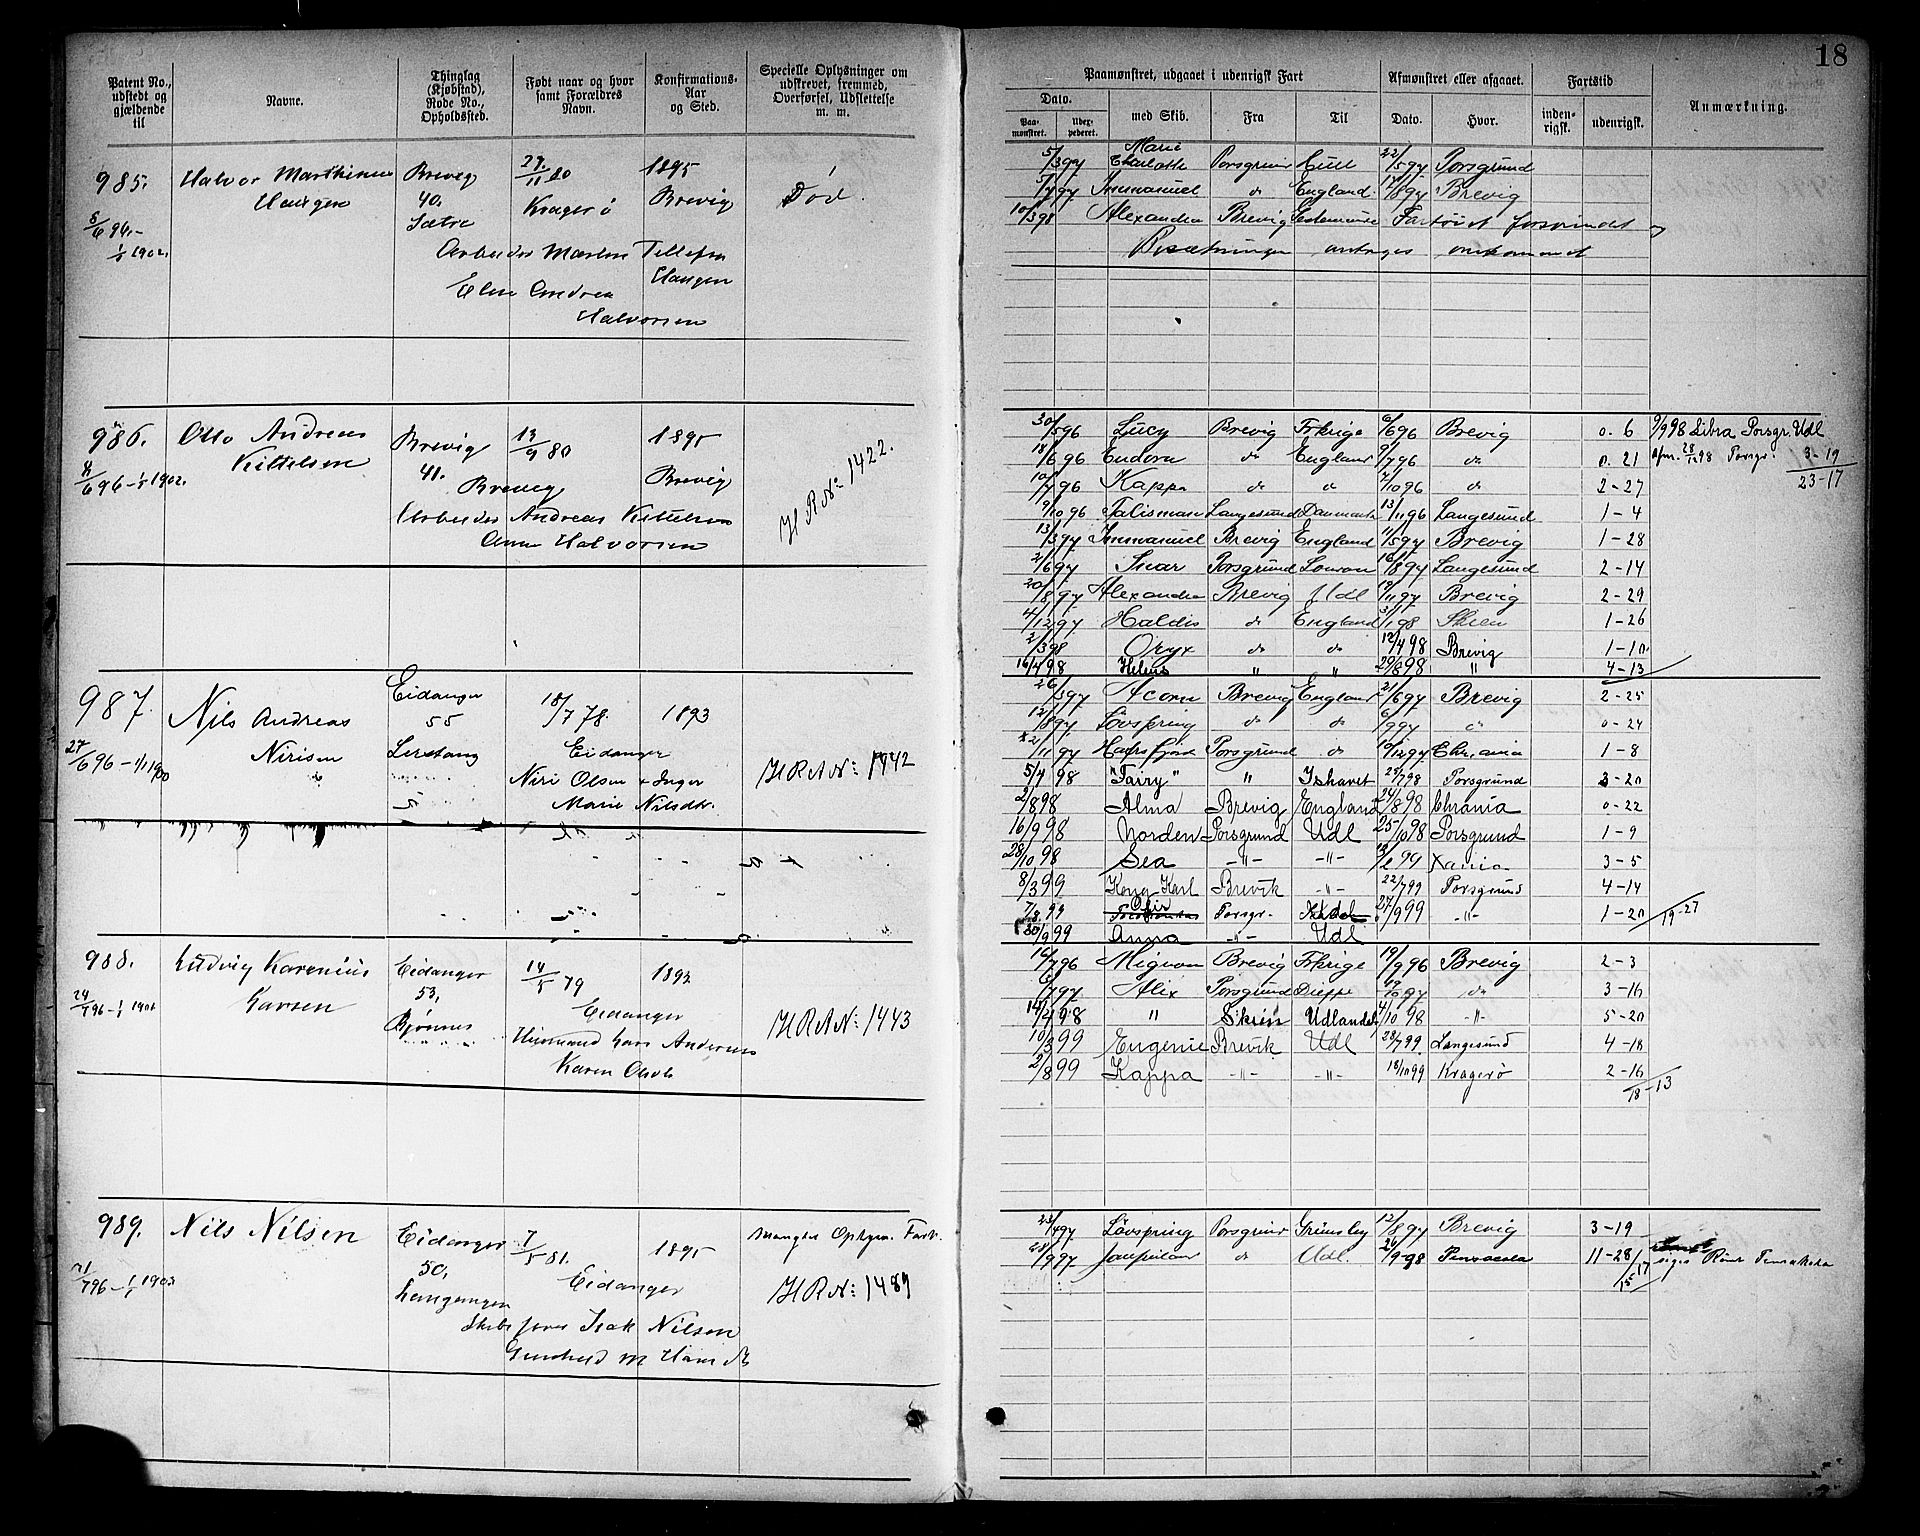 18
Patent No., udstedt og gjældende til
Navne.
Thinglag (Kjøbstad), Rode No., Opholdssted.
Født naar og hvor samt Forældres Navn.
Konfirmations-Aar og Sted.
Specielle Oplysninger om udskrevet, fremmed, Overførsel, Udslettelse m. m.
Paamønstret, udgaaet i udenrigsk Fart
Afmønstret eller afgaaet.
Fartstid
Anmærkning.
Dato.
Paa-mønstret.
Udex-pederet.
med Skib.
Fra
Til
Dato.
Hvor.
inden-rigsk.
udenrigsk.
985. Halvor Marthinius Haugen
5/6 96.- 1/1 1902.
Brevig 40. Sætre
29/11 80 Kragerø
1895 Brevig
Død.
Arbeider Marten Tellefsen Haugen
Elen Andrea Halvorsen
5/3 97 Marie Charlotte Porsgrund Hull 22/5 97 Porsgrund
5/7 97 Immanuel do England 14/8 97 Brevig
10/3 98 Alexandra Brevig Fartøiet forsvundet og
Besætningen antages omkommet
986. Otto Andreas Kittelsen
6 96 - 1/1 1902.
Brevig 41. Brevig
13/9 80
1895 Brevig
H R No: 1422.
Arbeider Andreas Kittelsen
Anne Halvorsen
30/5 96 Lucy Brevig Frkrige 6/6 96 Brevig 0. 6 9/9 98 Libra Porsgr. Udl
18/6 96 Eudora do England 9/7 96 do 0. 21 afm. 28/12 98 Porsgr. 3-19
10/7 96 Kappa do do 7/10 96 do 2-27 23-17
9/10 96 Talisman Langesund Danmark 13/11 96 Langesund 1-4
13/3 97 Immanuel Brevig England 11/5 97 Brevig 1-28
2/6 97 Snar Porsgrund 16/8 97 Langesund 2-14
20/8 97 Alexandra Brevig Udl 19/11 97 Brevig 2-29
4/12 97 Haldis do England 3/1 98 Skien 1-26
2/3 98 Oryx do do 12/4 98 Brevig 1-10
16/4 98 Helene " " 29/8 98 " 4-13
987. Nils Andreas Nirisen
27/6 96 - 1/1 1900
Eidanger 55 Lerstang
18/7 78. Eidanger
1893
H R A No: 1442
Niri Olsen & Inger Marie Nilsdtr.
26/3 97 Acorn Brevig England 21/6 97 Brevig 2-25
12/8 97 Løvspring do do 6/9 97 " 0-24
2/11 97 Hafrsfjord Porsgrund do 10/12 97 Chr.ania 1-8
5/4 98 "Fairy" " Ishavet 25/7 98 Porsgrund 3-20
2/8 98 Alma Brevig England 24/8 98 Chrania 0-22
16/9 98 Norden Porsgrund Udl 25/10 98 Porsgrund 1-9
28/10 98 Sea -"- -"- 13/2 99 Xania 3-5
8/3 99 Kong Karl Brevik -"- 22/7 99 Porsgrund 4-14
7/8 99 Porsgr. 27/9 99 -"- 1-20 19-27
30/9 99 Anna -"- Udl.
988. Ludvig Karenius Larsen
24/7 96 - 1/1 1901
Eidanger 53, Bjønnes
14/5 79 Eidanger
1893
H R A No: 1443
Huusmand Lars Andersen
Karen Olsdtr
16/7 96 Mignon Brevig Frkrige 19/9 96 Brevig 2-3
6/7 97 Alix Porsgrund Dieppe 22/10 97 do 3-16
14/4 98 " Skien Udlandet 4/10 98 -"- 5-20
10/3 99 Eugenie Brevik Udl 28/7 99. Langesund 4-18
2/8 99 Kappa -"- -"- 18/10 99 Kragerø 2-16
18-13
989. Nils Nilsen
21/7 96 - 1/1 1903
Eidanger 50, Langangen
7/5 81. Eidanger
1895
mangler Opgave Fart.
H R No: 1489
Skibsfører Isak Nilsen
Gunhild M Hansdtr
23/4 97 Løvspring Porsgrund Grimsby 12/8 97 Brevig 3-19
25/9 97 do Udl. 26/9-98 Pensacola 11-28
15-17
siges Rømt Pensakola